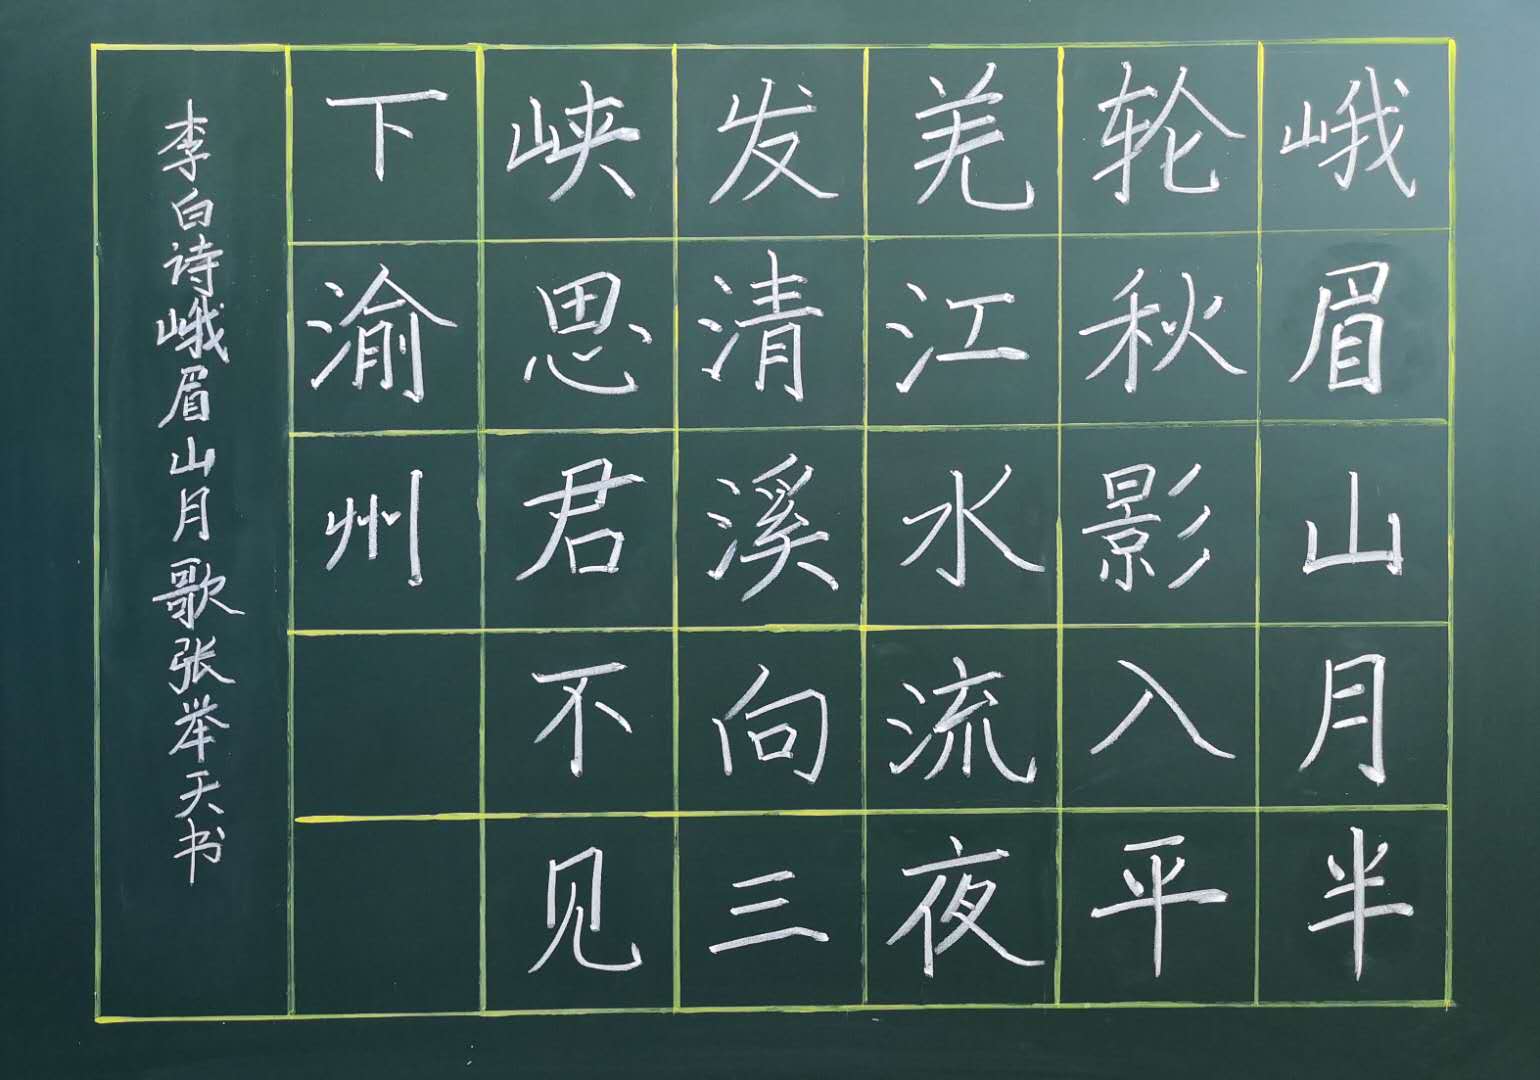 峨眉山月半
轮秋影入平
羌江水流夜
发清溪向三
峡思君不见
下渝州
李白诗峨眉山月歌张举天书